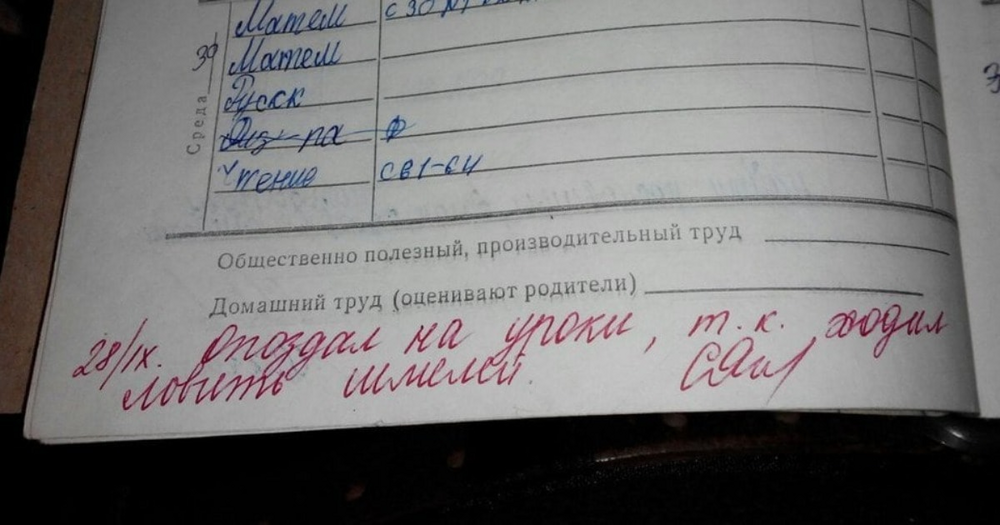 Матем
30
Матем
Русск
Среда
Физ-ра
Чтение с 61-64
Общественно полезный, производительный труд
Домашний труд (оценивают родители)
28/IX. Опоздал на уроки, т.к. ходил
ловить шмелей.